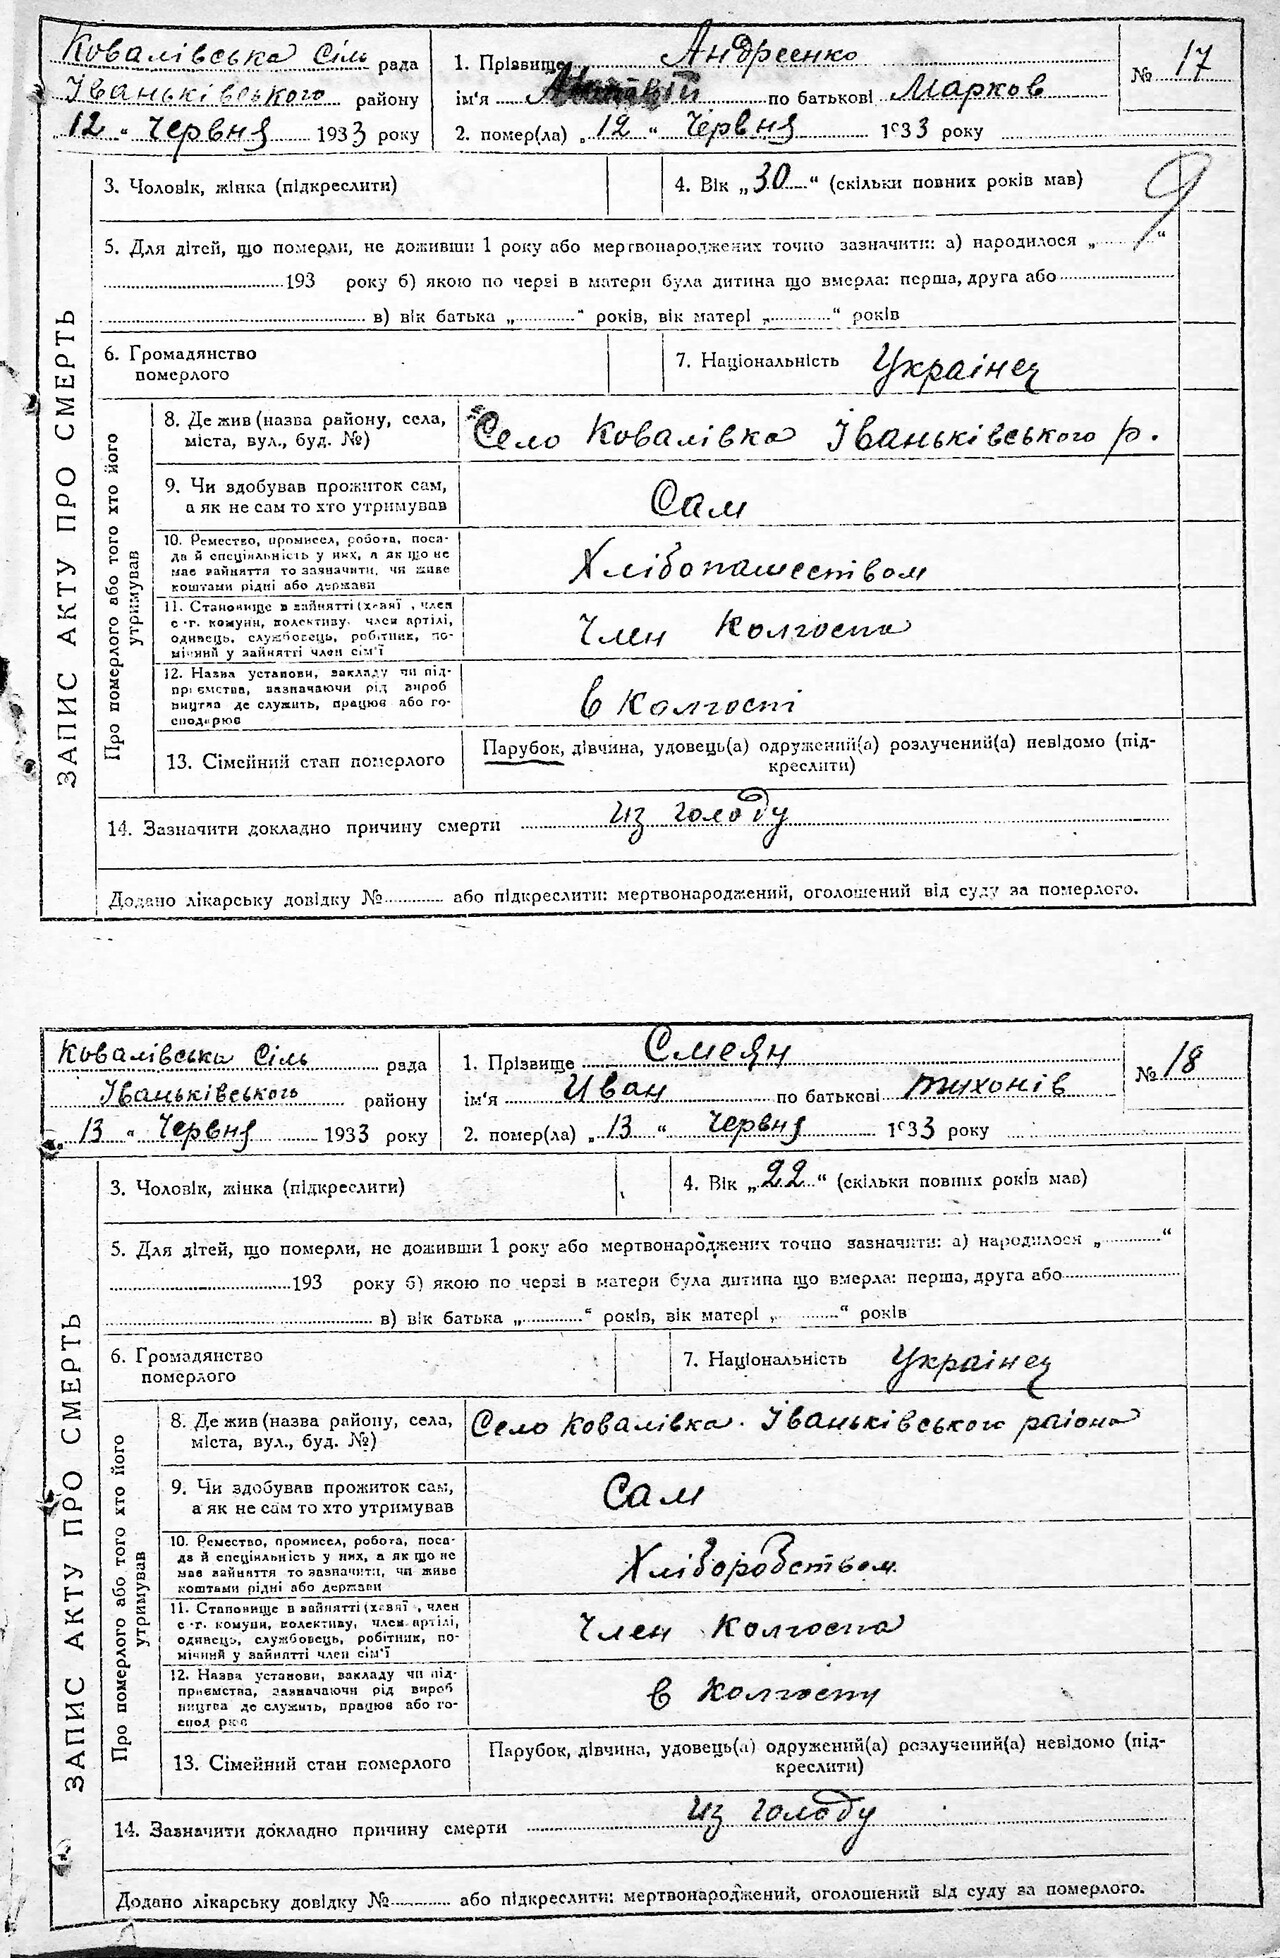 Ковалівська Сіль рада
Іваньківського району
12 " Червня 1933 року
1. Прізвище Андреенко
ім'я по батькові Марков
2. помер(ла) „ 12 " Червня 1933 року
№ 17
3. Чоловік, жінка (підкреслити)
4. Вік „30" (скільки повних років мав)
9
5. Для дітей, що померли, не доживши 1 року або мертвонароджених точно зазначити: а) народилося „ "
193 року б) якою по черзі в матери була дитина що вмерла: перша, друга або
в) вік батька „ " років, вік матері „ " років
6. Громадянство
померлого
7. Національність Украінец
ЗАПИС АКТУ ПРО СМЕРТЬ
Про померлого або того хто його
утримував
8. Де жив (назва району, села,
міста, вул., буд. №)
Село Ковалівка Іваньківського р.
9. Чи здобував прожиток сам,
а як не сам то хто утримував
Сам
10. Ремество, промисел, робота, поса-
да й спеціяльність у них, а як що не
має зайняття то зазначити, чи живе
коштами рідні або держави
Хлібопашеством
11. Становище в зайнятті (хазяї , член
с-г. комуни, колективу, член артілі,
одинець, службовець, робітник, по-
мічний у зайнятті член сім'ї
Член Колгоспа
12. Назва установи, закладу чи під-
приємства, зазначаючи рід вироб
ництва де служить, працює або го-
сподарює
в Колгоспі
13. Сімейний стан померлого
Парубок, дівчина, удовець(а) одружений(а) розлучений(а) невідомо (під-
креслити)
14. Зазначити докладно причину смерти из голоду
Додано лікарську довідку № або підкреслити: мертвонароджений, оголошений від суду за померлого.
Ковалівська Сіль рада
Іваньківського району
„ 13 " Червня 1933 року
1. Прізвище Смеян
ім'я Иван по батькові Тихонів
2. помер(ла) „ 13 " Червня 1933 року
№ 18
3. Чоловік, жінка (підкреслити)
4. Вік „22" (скільки повних років мав)
5. Для дітей, що померли, не доживши 1 року або мертвонароджених точно зазначити: а) народилося „ "
193 року б) якою по черзі в матери була дитина що вмерла: перша, друга або
в) вік батька „ " років, вік матері „ " років
6. Громадянство
померлого
7. Національність Украінец
ЗАПИС АКТУ ПРО СМЕРТЬ
Про померлого або того хто його
утримував
8. Де жив (назва району, села,
міста, вул., буд. №)
Село Ковалівка. Іваньківського раіона
9. Чи здобував прожиток сам,
а як не сам то хто утримував
Сам
10. Ремество, промисел, робота, поса-
да й спеціяльність у них, а як що не
має зайняття то зазначити, чи живе
коштами рідні або держави
Хліборобством
11. Становище в зайнятті (хазяї , член
с-г. комуни, колективу, член артілі,
одинець, службовець, робітник, по-
мічний у зайнятті член сім'ї
Член Колгоспа
12. Назва установи, закладу чи під-
приємства, зазначаючи рід вироб
ництва де служить, працює або го-
в Колгоспи
13. Сімейний стан померлого
Парубок, дівчина, удовець(а) одружений(а) розлучений(а) невідомо (під-
креслити)
14. Зазначити докладно причину смерти из голоду
Додано лікарську довідку № або підкреслити: мертвонароджений, оголошений від суду за померлого.